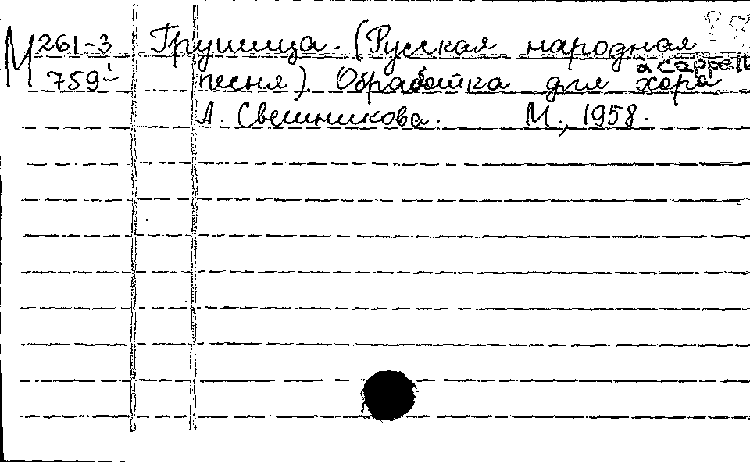 М 261-3 Грушица. (Русская народная
759 песня). Обработка для хора a cappella
А. Свешникова. М., 1958.